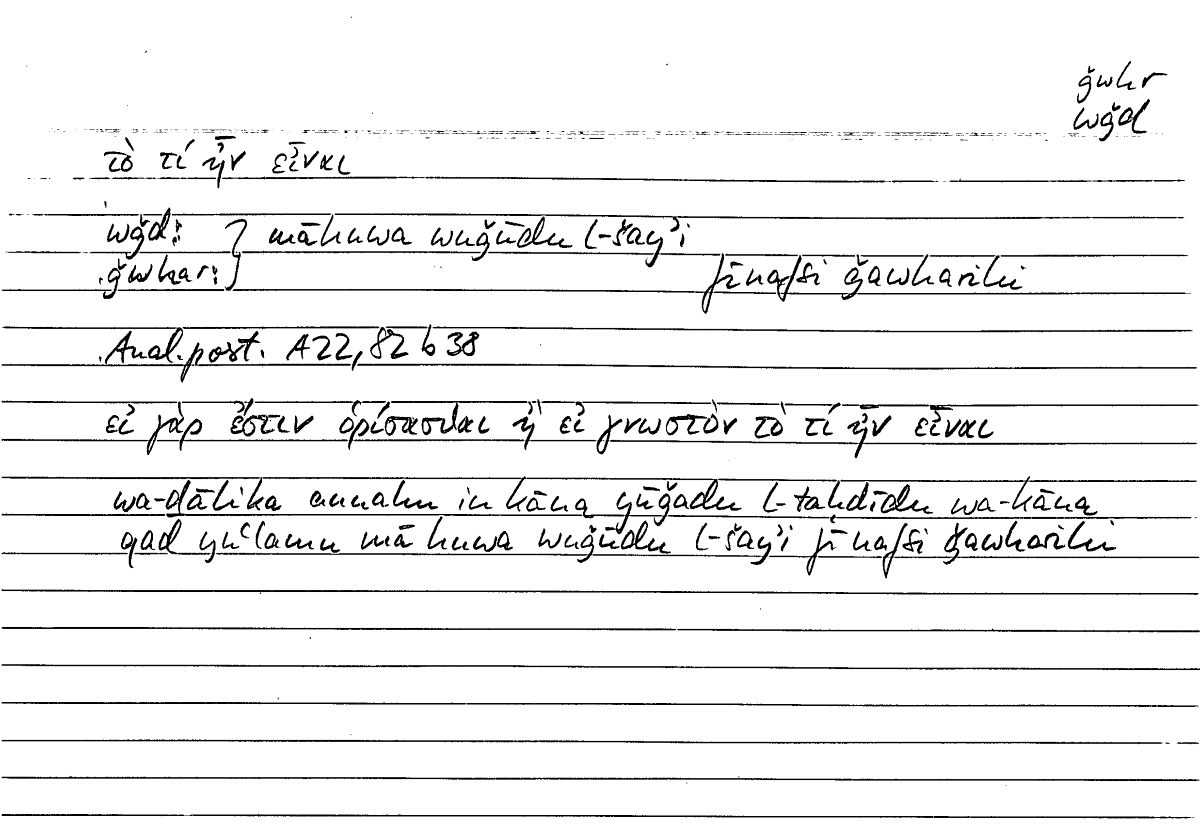 ǧwhr
wǧd
τὸ τί ἦν εἶναι
wǧd: } māhuwa wuǧūdu l-šayʾi
ǧwhar: } fī nafsi ǧawharihi
Anal. post. A 22, 82 b 38
εἰ γὰρ ἔστιν ὁρίσασθαι ἢ εἰ γνωστὸν τὸ τί ἦν εἶναι
wa-ḏālika annahu in kāna yūǧadu l-taḥdīdu wa-kāna
qad yuʿlamu mā huwa wuǧūdu l-šayʾi fī nafsi ǧawharihi